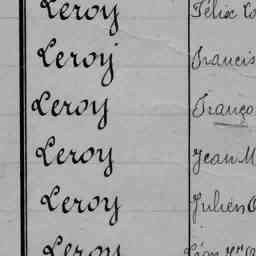 Leroy Félix
Leroy Francis
Leroy
Leroy Jean M
Leroy Julien
Leroy Léon